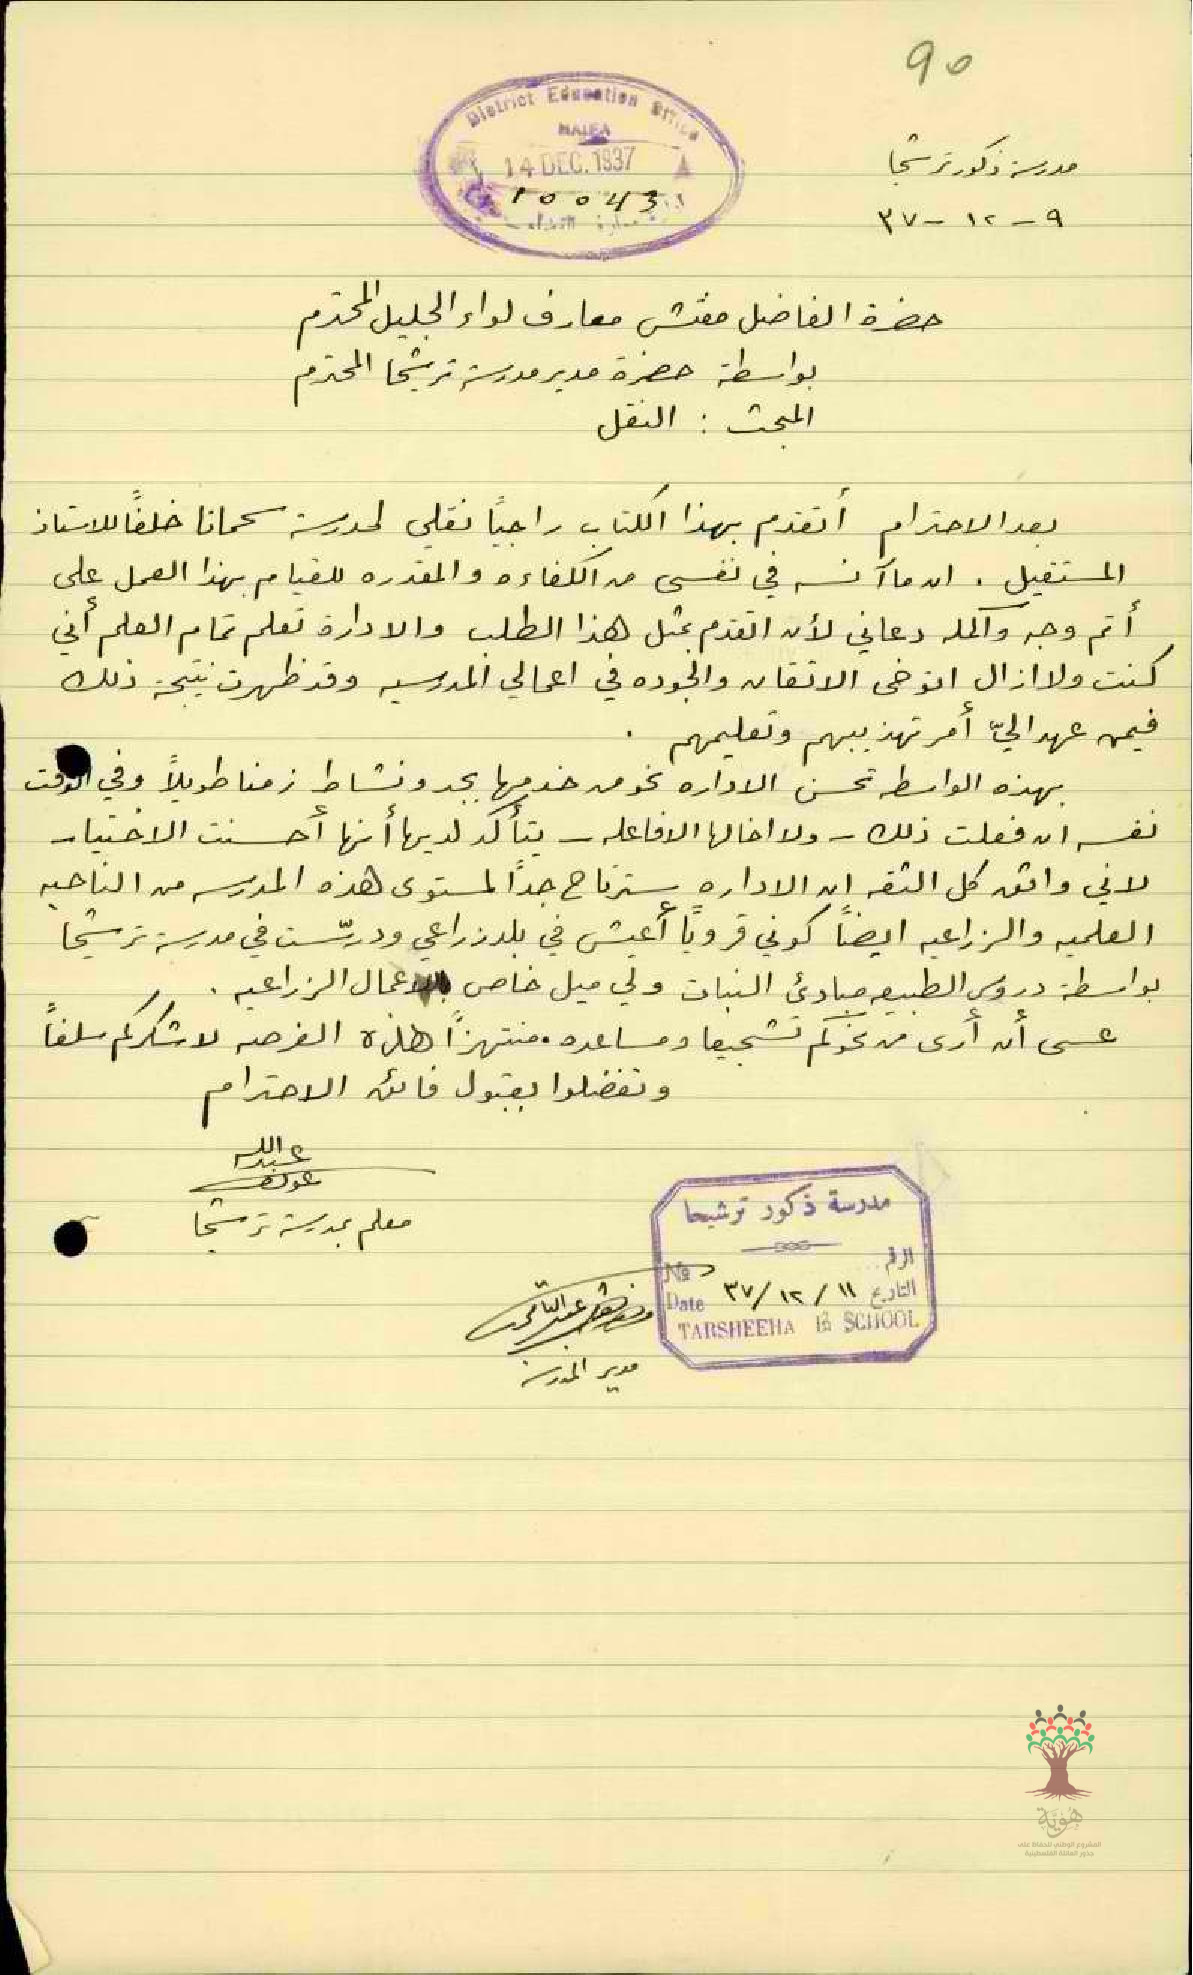 90
District Education Office
HAIFA
14 DEC. 1937
10043
مدرسة ذكور ترشيحا
٩ – ١٢ – ٣٧
حضرة الفاضل مفتش معارف لواء الجليل المحترم
بواسطة حضرة مدير مدرسة ترشيحا المحترم
المبحث : النقل
بعد الاحترام أتقدم بهذا الكتاب راجيًا نقلي لمدرسة سحماتا خلفًا للاستاذ
المستقيل . ان ما آنسه في نفسي من الكفاءه والمقدره للقيام بهذا العمل على
أتم وجه وأكمله دعاني لأن اتقدم بمثل هذا الطلب والادارة تعلم تمام العلم أني
كنت ولا ازال اتوخى الاتقان والجوده في اعمالي المدرسيه وقد ظهرت نتيجة ذلك
فيمن عهد اليّ أمر تهذيبهم وتعليمهم .
بهذه الواسطه تحسن الاداره نحو من خدمها بجد ونشاط زمنا طويلاً وفي الوقت
نفسه ان فعلت ذلك – ولا اخالها الا فاعله – يتأكد لديها أنها أحسنت الاختيار
لاني واثق كل الثقه ان الاداره سترتاح جداً لمستوى هذه المدرسه من الناحيه
العلميه والزراعيه ايضاً كوني قرويًا أعيش في بلد زراعي ودرّست في مدرسة ترشيحا
بواسطة دروس الطبيعه مبادئ النبات ولي ميل خاص بالاعمال الزراعيه .
عسى أن أرى من نحوكم تشجيعا ومساعده . منتهزاً هذه الفرصه لاشكركم سلفاً
وتفضلوا بقبول فائق الاحترام
عبدالله
معلم بمدرسة ترشيحا
مدرسة ذكور ترشيحا
الرقم
№
التاريخ ١١ / ١٢ / ٣٧ Date
TARSHEEHA B. SCHOOL
مدير المدرسة
هُويَّة
المشروع الوطني للحفاظ على
جذور العائلة الفلسطينية